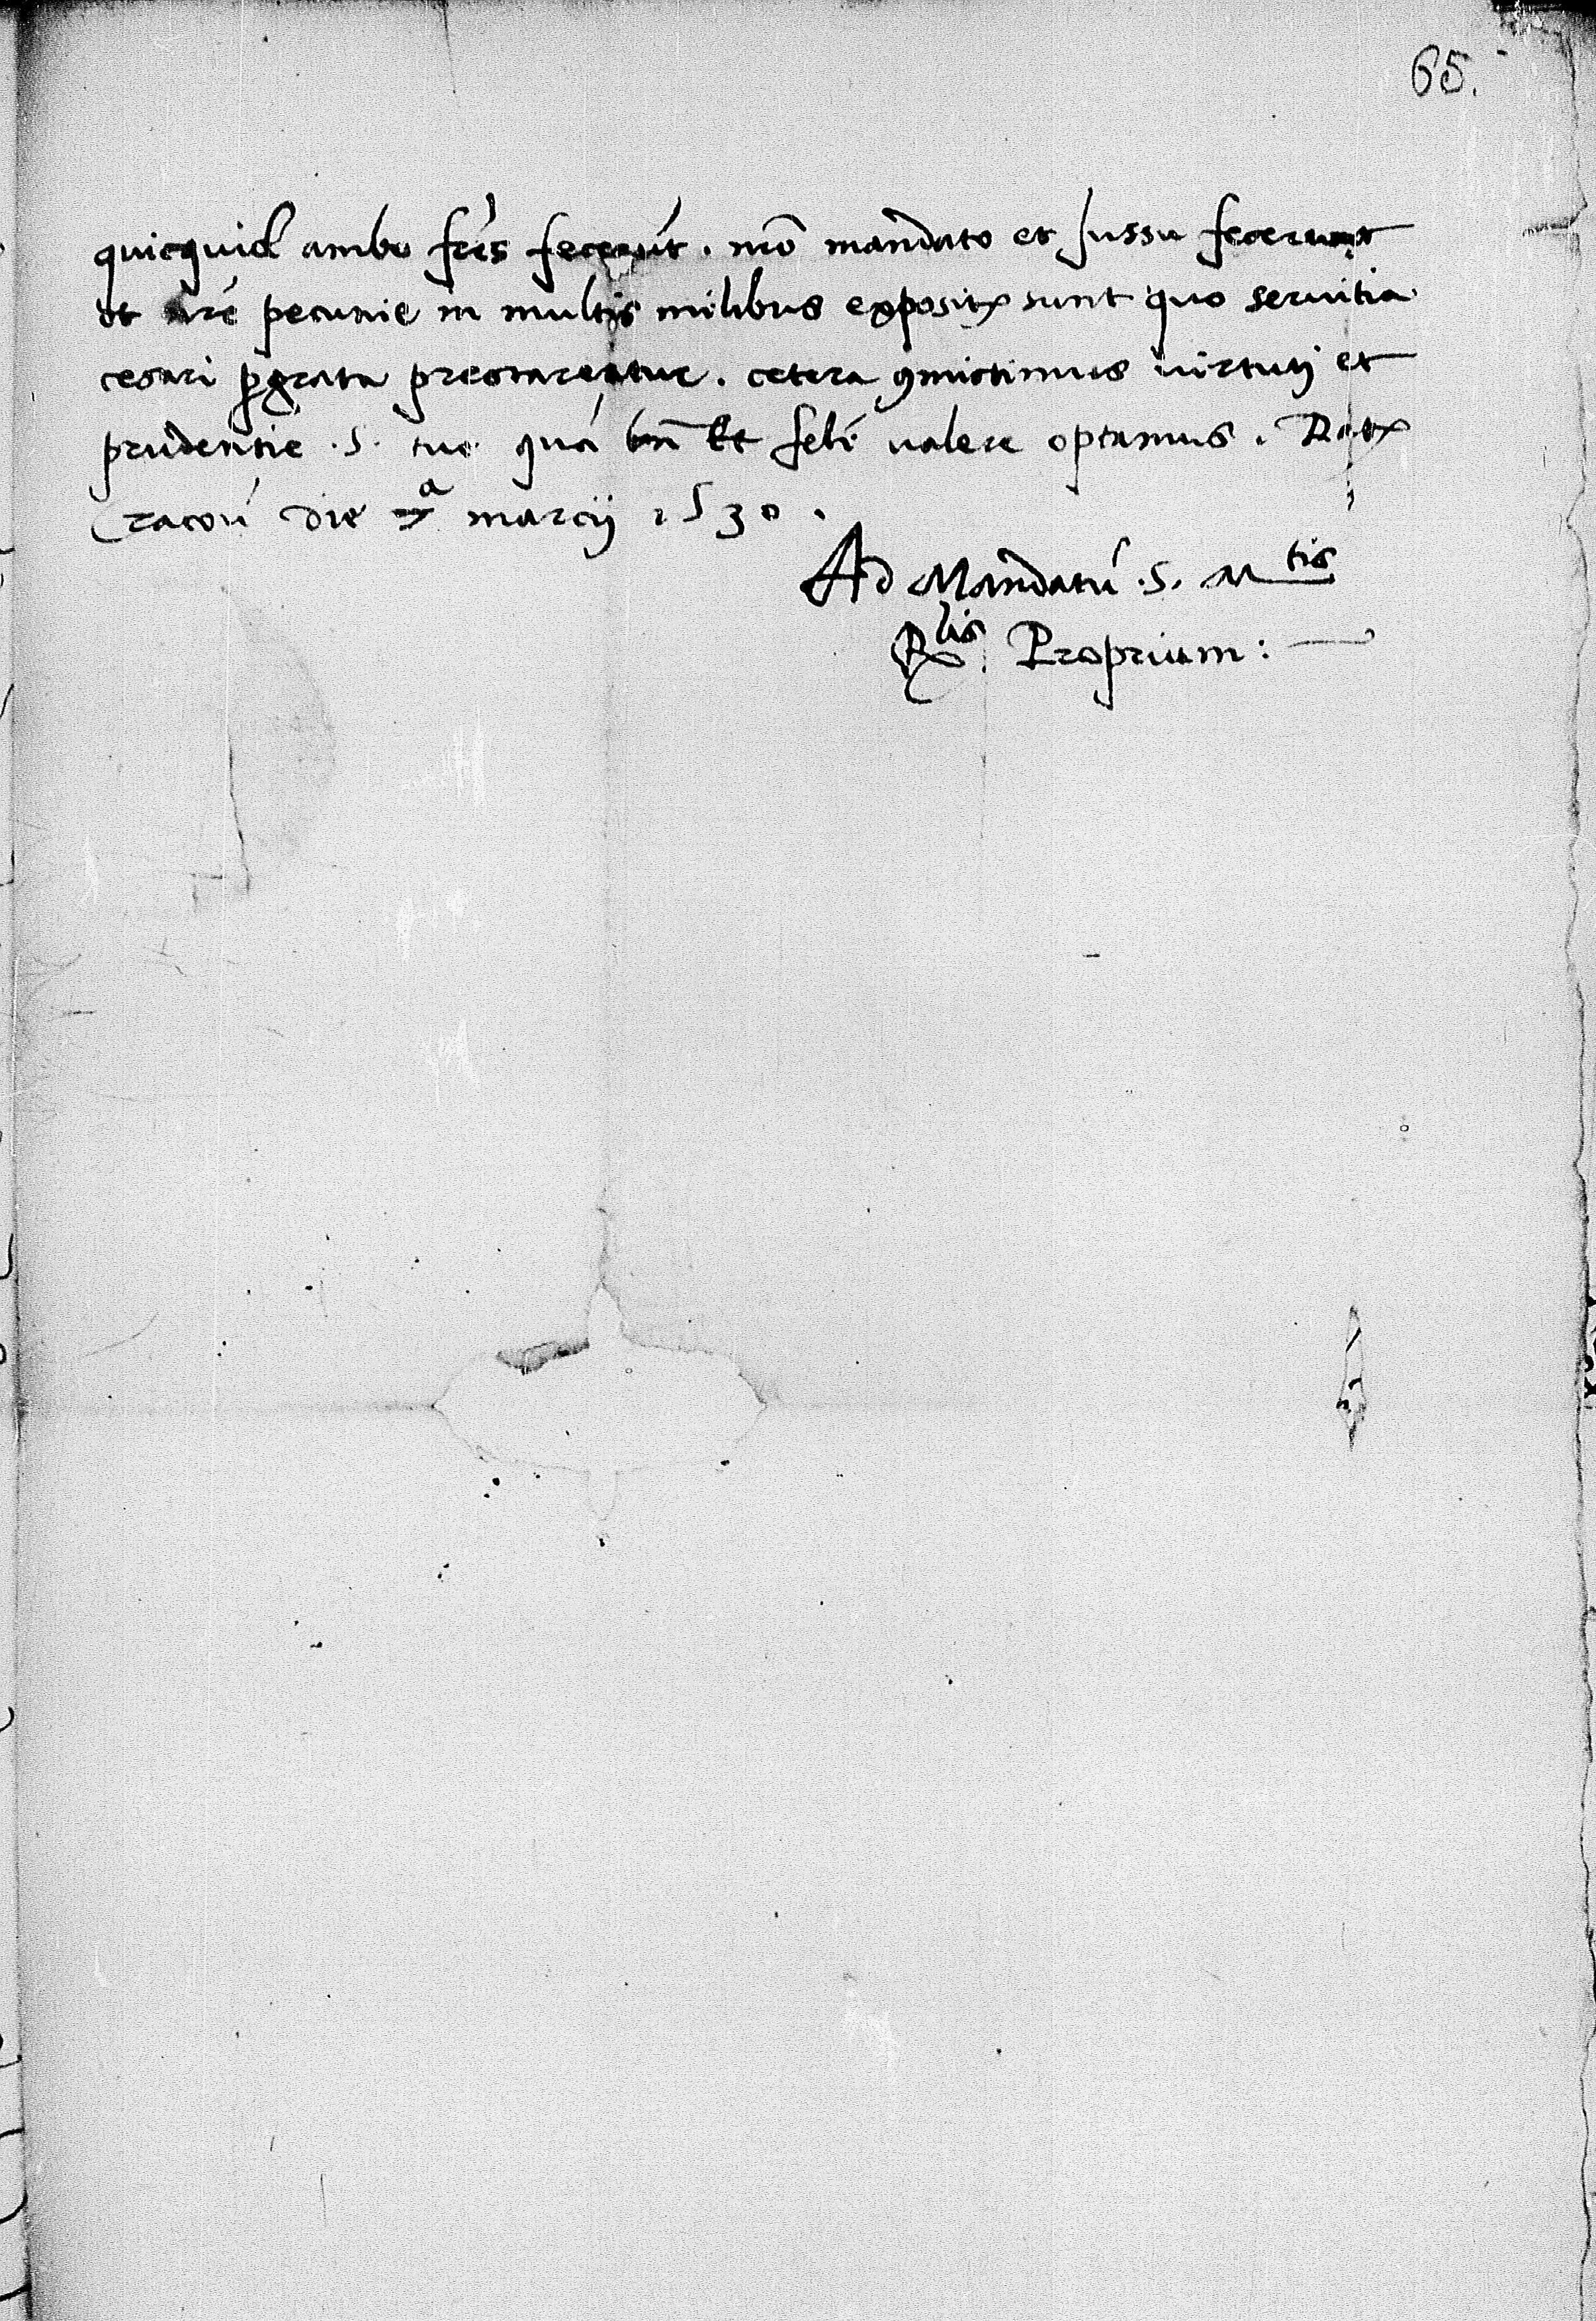 65.
quicquid ambo frēs fecerūt . nrō mandato et Jussu fecerunt
et nrē pecunie in multis milibus expositę sunt quo seruitia
cesari ꝑgrata prestarentur . cetera ꝯmictimus uirtuti et
prudentie .S. tue quā bn̄ Et feli valere optamus . Datę
Cracoū die 7ᵃ marcij 1530 .
Ad Mandatū .S. Mᵗⁱˢ
Rˡⁱˢ Proprium :